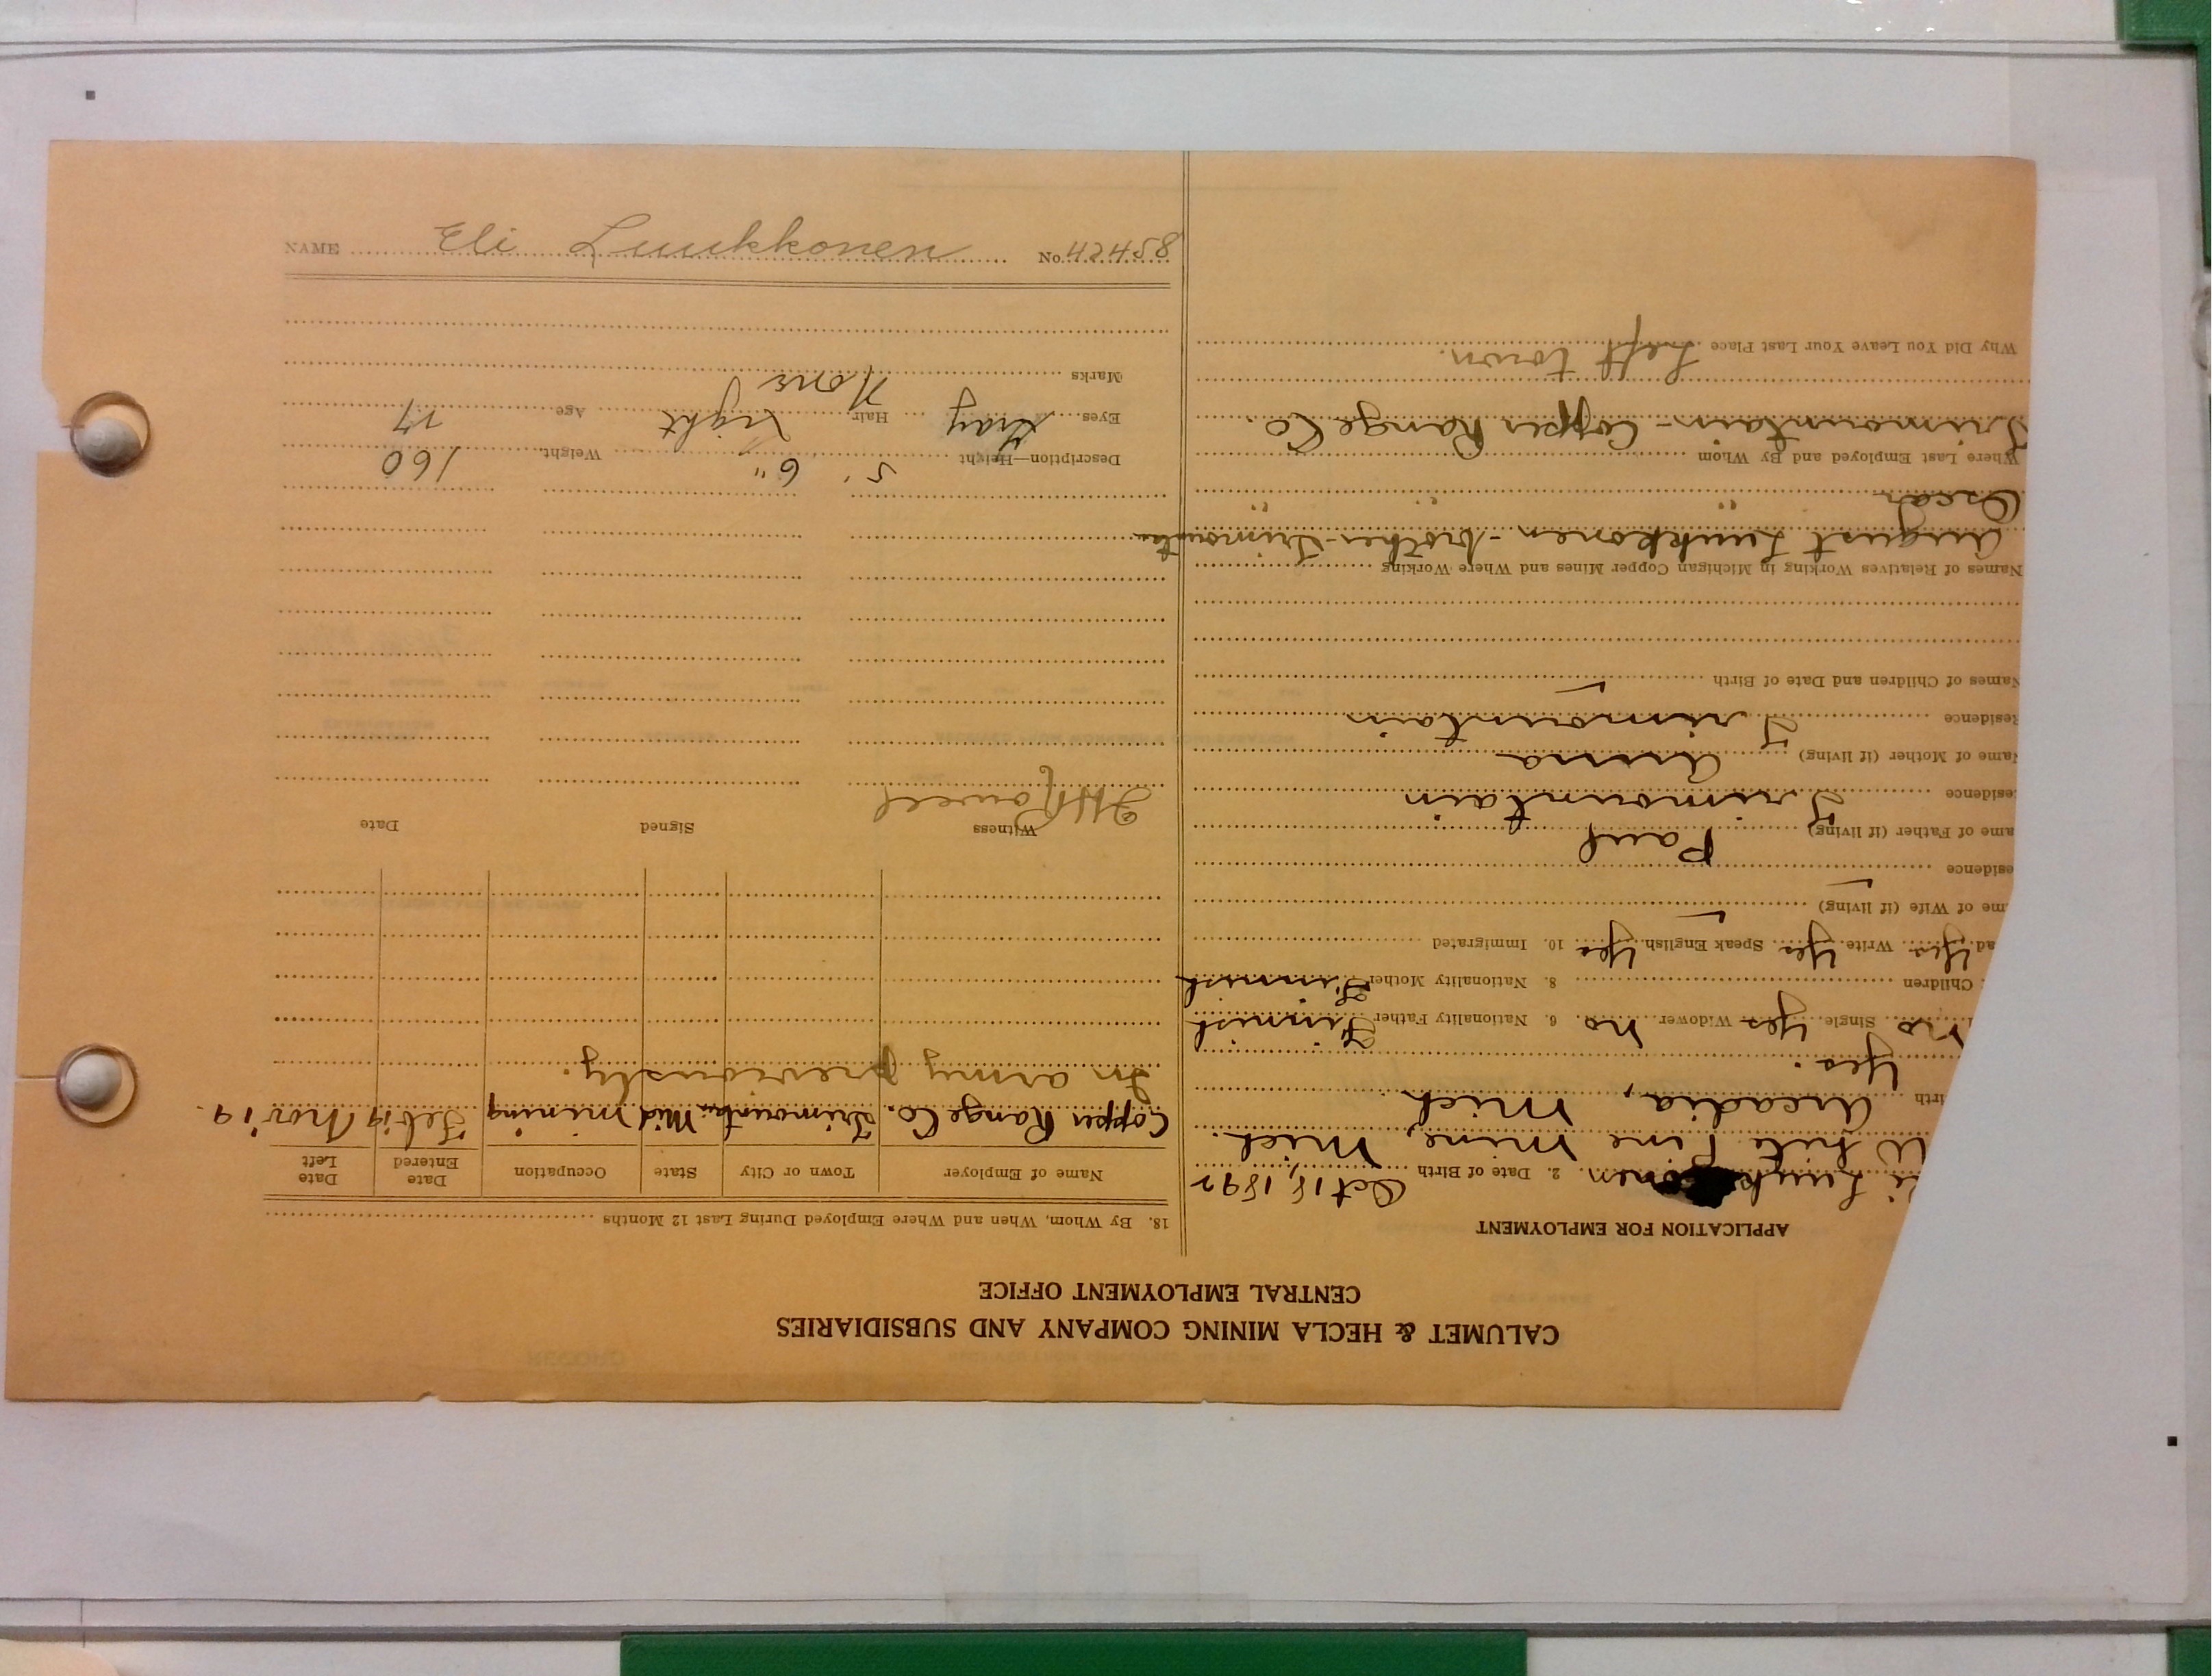 CALUMET & HECLA MINING COMPANY AND SUBSIDIARIES
CENTRAL EMPLOYMENT OFFICE
APPLICATION FOR EMPLOYMENT
i Luukkonen 2. Date of Birth Oct 18, 1892
White Pine Mine, Mich.
irth Arcadia, Mich
Yes.
No Single Yes Widower No 6. Nationality Father Finnish
Children 8. Nationality Mother Finnish
ad Yes Write Yes Speak English Yes 10. Immigrated
me of Wife (if living)
esidence
ame of Father (if living) Paul
esidence Trimountain
Name of Mother (if living) Anna
Residence Trimountain
Names of Children and Date of Birth
Names of Relatives Working in Michigan Copper Mines and Where Working
August Luukkonen - brother - Trimountain
Oscar " " "
Where Last Employed and By Whom
Trimountain - Copper Range Co.
Why Did You Leave Your Last Place Left town.
18. By Whom, When and Where Employed During Last 12 Months
Name of Employer Town or City State Occupation Date Entered Date Left
Copper Range Co. Trimountain Mich mining Feb 19 Nov 19.
In army previously.
Witness Signed Date
Description—Height 5' 6" Weight 160
Eyes Gray Hair Light Age 27
Marks None
NAME Eli Luukkonen No. 42458